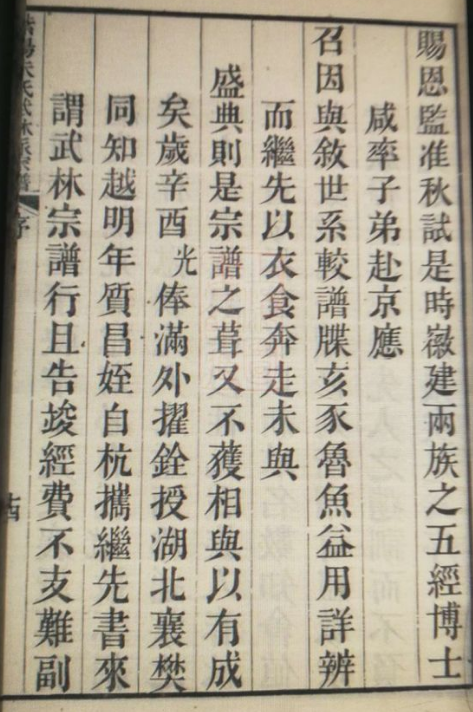 賜恩監准秋試是時徽建兩族之五經博士
咸率子弟赴京應
召因與敘世系較譜牒亥豕魯魚益用詳辨
而繼先以衣食奔走未與
盛典則是宗譜之葺又不獲相與以有成
矣歲辛酉光俸滿外擢銓授湖北襄樊
同知越明年質昌姪自杭攜繼先書來
謂武林宗譜行且告竣經費不支難副
朱氏武林派宗譜
序